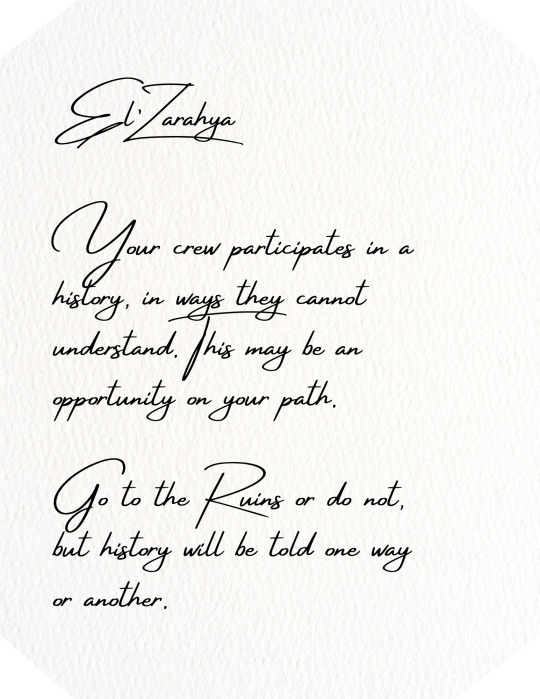 El'Zarahya
Your crew participates in a
history, in ways they cannot
understand. This may be an
opportunity on your path.
Go to the Ruins or do not,
but history will be told one way
or another.